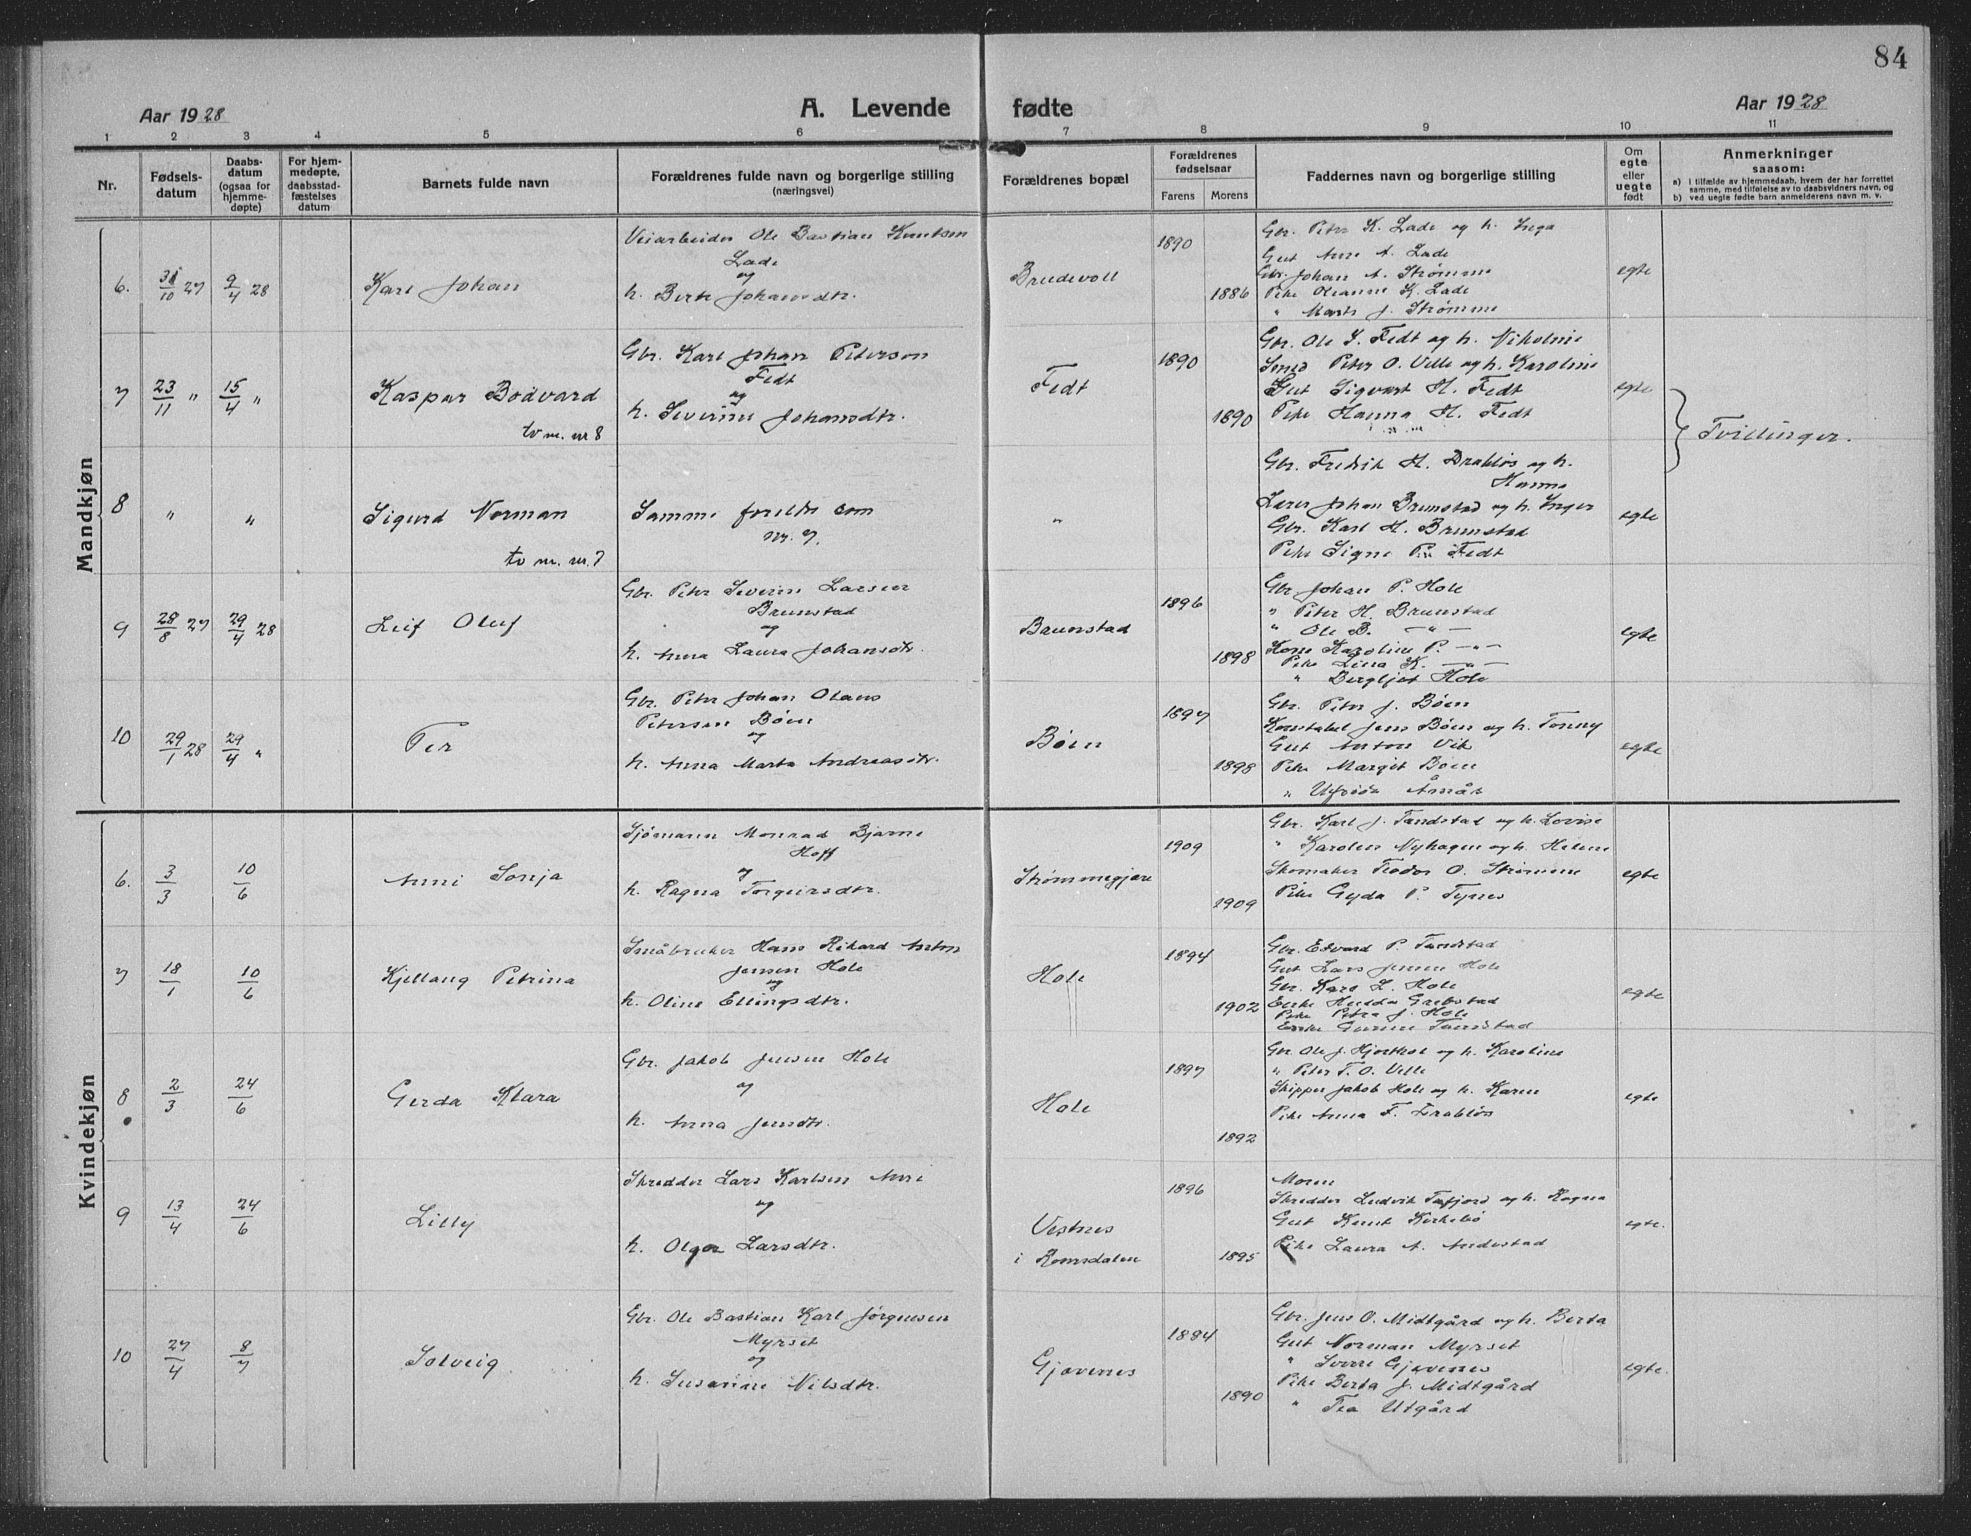 84
Aar 1928
A. Levende fødte
Aar 1928
1 2 3 4 5 6 7 8 9 10 11
Nr.
Fødsels-
datum
Daabs-
datum
(ogsaa for
hjemme-
døpte)
For hjem-
medøpte,
daabsstad-
fæstelses
datum
Barnets fulde navn
Forældrenes fulde navn og borgerlige stilling
(næringsvei)
Forældrenes bopæl
Forældrenes
fødselsaar
Farens Morens
Faddernes navn og borgerlige stilling
Om
egte
eller
uegte
født
Anmerkninger
saasom:
a) i tilfælde av hjemmedaab, hvem der har forrettet
samme, med tilføielse av to daabsvidners navn, og
b) ved uegte fødte barn anmelderens navn m. v.
Mandkjøn
6. 31/10 27 9/4 28 Karl Johan
Veiarbeider Ole Bastian Knutsen
Lade
og
h. Berte Johansdtr.
Brudevoll
1890
1886
Gbr. Peter K. Lade og h. Inga
Gut Arne A. Lade
Gbr. Johan A. Strømme
Pike Oleanne K. Lade
" Marth J. Strømme
egte
7 23/11 " 15/4 " Kaspar Bodvard
tv m. nr 8
Gbr. Karl Johan Peterson
Fedt
og
h. Severine Johansdtr.
Fedt
1890
1890
Gbr. Ole S. Fedt og h. Nikoline
Smed Peter O. Velle og h. Karoline
Gut Sigvart H. Fedt
Pike Hanna H. Fedt
egte
Tvillinger.
8 " " Sigurd Norman
tv m. nr. 7
Samme foreldre som
nr. 7.
"
Gbr. Fredrik H. Drabløs og h.
Hanna
Lærer Johan Brunstad og h. Inger
Gbr. Karl H. Brunstad
Pike Signe P. Fedt
egte
9 28/8 27 29/4 28 Leif Oluf
Gbr. Peter Severin Larsen
Brunstad
og
h. Anna Laura Johansdtr.
Brunstad
1896
1898
Gbr Johan P. Hole
" Peter H. Brunstad
" Ole B. — " —
Kone Karoline P. — " —
Pike Lina K. — " —
" Bergljot Hole
egte
10 29/1 28 29/4 " Per
Gbr. Peter Johan Olaus
Petersen Bøen
og
h. Anna Marta Andreasdtr.
Bøen
1897
1898
Gbr. Peter J. Bøen
Konstabel Jens Bøen og h. Tonny
Gut Anton Vik
Pike Margit Bøen
" Åsnås
egte
Kvindekjøn
6. 3/3 10/6 Anni Sonja
Sjømann Monrad Bjarne
Hoff
og
h. Ragna Torgeirsdtr.
Strømmegjære
1909
1909
Gbr. Karl J. Tandstad og h. Lovise
" Karolus Nyhagen og h. Helene
Skomaker Teodor O. Strømme
Pike Gyda P. Tynes
egte
7 18/1 10/6 Kjellaug Petrina
Småbruker Hans Rikard Anton
Jensen Hole
og
h. Oline Ellingsdtr.
Hole
1894
1902
Gbr. Edvard P. Tandstad
Gut Lars Jensen Hole
Gbr. Kars L. Hole
Enke Hedda Grebstad
Pike Petra J. Hole
Enke Gurine Tandstad
egte
8 2/3 24/6 Gerda Klara
Gbr. Jakob Jensen Hole
og
h. Anna Jensdtr.
Hole
1897
1892
Gbr Ole J. Hjorthol og h. Karoline
" Peter T. O. Velle
Skipper Jakob Hole og h. Karen
Pike Anna F. Drabløs
egte
9 13/4 24/6 Lilly
Skredder Lars Karlsen Aure
og
h. Olga Larsdtr.
Vestnes
i Romsdalen
1896
1895
Moren
Skredder Ludvik Tafjord og h. Ragna
Gut Knut Kirkebø
Pike Laura A. Andestad
egte.
10 27/4 8/7 Solveig
Gbr. Ole Bastian Karl Jørgensen
Myrset
og
h. Susanne Nilsdtr.
Gjævenes
1894
1890
Gbr. Jens O. Midtgård og h. Berta
Gut Norman Myrset
" Sverre Gjævenes
Pike Berta J. Midtgård
" Tea Utgård
egte.